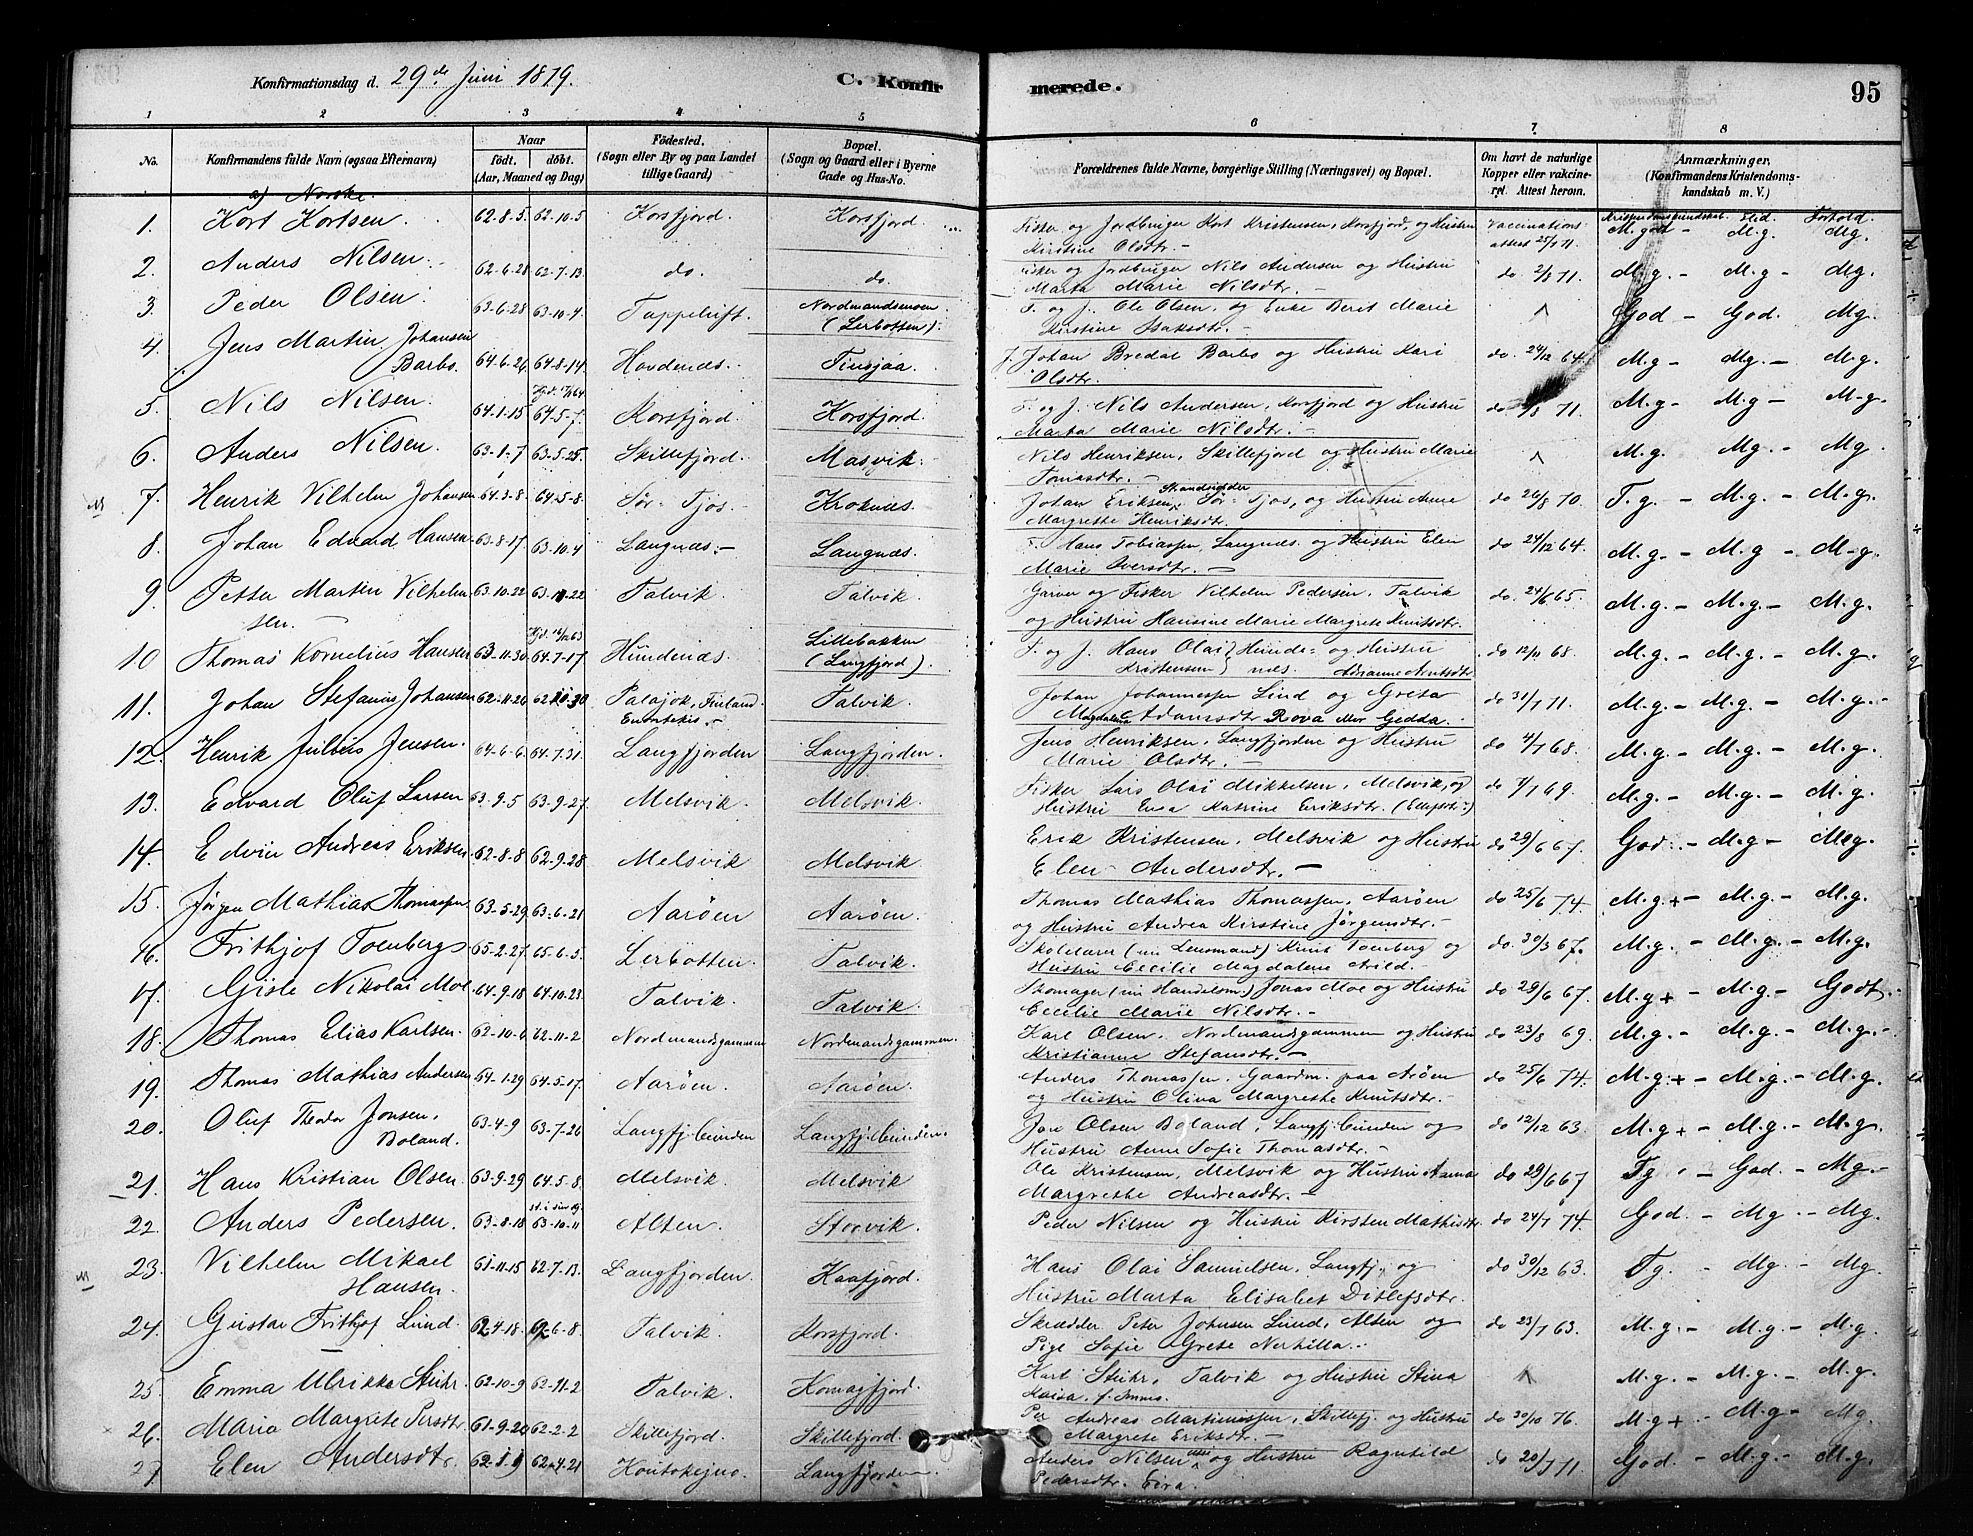 Konfirmationsdag d. 29de Juni 1879.
C. Konfir
merede.
95
1 2 3 4 5 6 7 8
No.
Konfirmandens fulde Navn (ogsaa Efternavn)
Naar
födt. döbt.
(Aar, Maaned og Dag)
Födested.
(Sogn eller By og paa Landet
tillige Gaard)
Bopæl.
(Sogn og Gaard eller i Byerne
Gade og Hus-No.
Forældrenes fulde Navne, borgerlige Stilling (Næringsvei) og Bopæl.
Om havt de naturlige
Kopper eller vakcine-
ret. Attest herom.
Anmærkninger.
(Konfirmandens Kristendoms-
kundskab m. V.)
a) Norske.
Kristendomskundskab. Flid. Forhold.
1. Kort Kortsen. 62-8-5 62-10-5 Korsfjord. Korsfjord. Fisker og Jordbruger Kort Kristensen, Korsfjord, og Hustru Vaccinations M. god - M.g. Mg.
Kirstine Olsdtr. - attest 25/7 71.
2. Anders Nilsen. 62-6-28 62-7-13 do. do. Fisker og Jordbruger Nils Andersen og Hustru do 2/8 71. M.g. - M.g - Mg
Marta Marie Nilsdtr. -
3. Peder Olsen 63-6-28 63-10-4 Tappeluft. Nordmandsmoen F. og J. Ole Olsen, og Enke Berit Marie God - God. Mg.
(Lerbotten). Kirstine Isaksdtr. -
4. Jens Martin Johansen 64-6-26 64-8-14 Havdenæs. Finsjaa. J. Johan Bredal Barbo og Hustru Kari do. 24/12 64. M.g - Mg. - M.g.
Barbo. Olsdtr.
5. Nils Nilsen. 64-1-15 64-5-7 Korsfjord. Korsfjord. F. og J. Nils Andersen, Korsfjord og Hustru do 2/8 71. M.g - M.g - M-g.
Marta Marie Nilsdtr. -
6. Anders Nilsen. 63-1-7 63-5-25 Skillefjord. Masvik. Nils Henriksen, Skillefjord og Hustru Marie M.g. M.g - Mg
Tomasdtr. -
7. Henrik Vilhelm Johansen 64-3-8 64-5-8 Sør-Tjos. Kroknæs. Johan Eriksen, Strandsidder Sør-Tjos, og Hustru Anne do 26/8 70. T.g. - M.g. - M.g.
Margrethe Henriksdtr.
8. Johan Edvard Hansen 63-8-17 63-10-4 Langnæs. - Langnæs. F. Hans Tobiassen, Langnæs og Hustru Elen do 24/12 64. M.g. - M.g - M-g.
Marie Iversdtr. -
9. Petter Martin Vilhelm 63-10-22 63-11-22 Talvik Talvik. Garver og Fisker Vilhelm Pedersen, Talvik do. 24/6 65. M.g - M.g. - M.g.
sen. - og Hustru Hansine Marie Margrete Knutsdtr.
10 Thomas Kornelius Hansen 63-11-30 64-7-17 Hundenæs. Lillebakken F. og J. Hans Olai Kristensen Hunde- og Hustru do 12/11 68. M.g - M.g - M.g.
(Langfjord). næs. Adrianne Arntsdtr
11. Johan Stefanus Johansen 62-11-26 62-11-30 Palajok, Finland. Talvik. Johan Johannessen Lind og Greta do 31/7 71. M.g - M.g. - M.g. -
Enontekis. - Magdalena Adamsdtr Rova eller Gedda.
12. Henrik Julius Jensen. 64-6-6 64-7-31 Langfjorden Langfjorden. Jens Henriksen, Langfjorden og Hustru do 4/7 68. M.g - M.g. - M.g.
Marie Olsdtr. -
13. Edvard Oluf Larsen 63-9-5 63-9-27 Melsvik. Melsvik. Fisker Lars Olai Mikkelsen, Melsvik, og do 7/7 69. M.g. - M.g. - M.g.
Hustru Eva Katrine Eriksdtr.
14. Edvin Andreas Eriksen 62-8-8 62-9-28 Melsvik Melsvik. Erik Kristensen, Melsvik og Hustru do 29/6 67. God. - M.g - M.g.
Elen Andersdtr. -
15. Jørgen Mathias Thomassen 63-5-29 63-6-21 Aarøen Aarøen. Thomas Mathias Thomassen, Aarøen do 25/6 74. M.g.+ - M.g. - M.g.
og Hustru Andrea Kirstine Jørgensdtr. -
16. Frithjof Toenbergs 65-2-27 65-6-5 Lerbotten. Talvik. Skolelærer (nu Lensmand) Knut Toenberg og do. 30/3 67. M.g. - M.g. - M.g.
Hustru Cecilie Magdalene Arild.
17. Gisle Nikolai Moe 64-9-18 64-10-23 Talvik. Talvik. (nu Handelsm.) Jonas Moe og Hustru do 29/6 67. M.g+ - M.g. - Godt.
Cecilie Marie Nilsdtr. -
18. Thomas Elias Karlsen. 62-10-6 62-11-2 Nordmandsgammen Nordmandsgammen. Karl Olsen, Nordmandsgammen og Hustru do 23/8 69. M.g. - M.g. - M.g.
Kristianne Stefansdtr. -
19. Thomas Mathias Andersen 64-1-29 64-5-17. Aarøen. Aarøen Anders Thomassen, Gaardm. paa Arøen do 25/6 74. M.g.+ - M.g. - M.g.
og Hustru Olina Margrethe Knutsdtr. -
20. Oluf Theodor Jonsen. 63-4-9 63-7-26 Langfj.bunden Langfj.bunden. Jon Olsen Boland, Langfj.bunden og do 12/12 63. M.g+ - M.g. - M.g.
Boland. Hustru Anne Sofie Thomasdtr. -
21. Hans Kristian Olsen. 63-9-29 64-5-8. Melsvik. Melsvik Ole Kristensen, Melsvik og Hustru Anna do 29/6 67 Tg. - God. - Mg. -
Margrethe Andreasdtr. -
22. Anders Pedersen. 63-8-18 63-10-11 Alten. Storvik. Peder Nilsen og Hustru Kirsten Mathisdtr. do 24/7 74. God. - Mg. - Mg.
23. Vilhelm Mikael 61-11-15 62-7-13. Langfjorden. Kaafjord. Hans Olai Samuelsen, Langfj. og do 30/12 63. Tg. - Mg - Mg.
Hansen. Hustru Marta Elisabet Ditlefsdtr.
24. Gustav Frithjof Lund. 62-4-18. 62-6-8. Talvik. Korsfjord. Skrædder Peter Johnsen Lund, Alten og do 23/7 63. M.g. - M.g. - M.g.
Pige Sofie Grete Nerhilla. -
25. Emma Ulrikka Stuhr. 62-10-9 62-11-2 Talvik. Komagfjord. Karl Stuhr, Talvik og Hustru Stina M.g. - M.g. - M.g
Kaisa.
26. Maria Margrete Persdtr. 61-9-20 62-2-2 Skillefjord. Skillefjord. Per Andreas Martinussen, Skillefj. og Hustru do 30/10 76. M.g+ - M.g - Mg
Margrete Eriksdtr. -
27 Elen Andersdtr. 62-1-9 62-4-21 Koutokejno. Langfjorden. Anders Nilsen og Hustru Ragnhild do 20/7 71. God. - M.g. - M.g.
Pedersdtr. Eira.